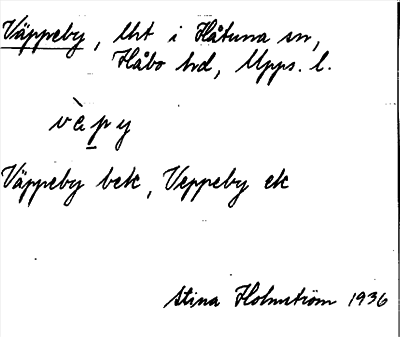 Väppeby, Uht i Håtuna sn,
Håbo hd, Upps. l.
vàpy
Väppeby bek, Veppeby ek
Stina Holmström 1936